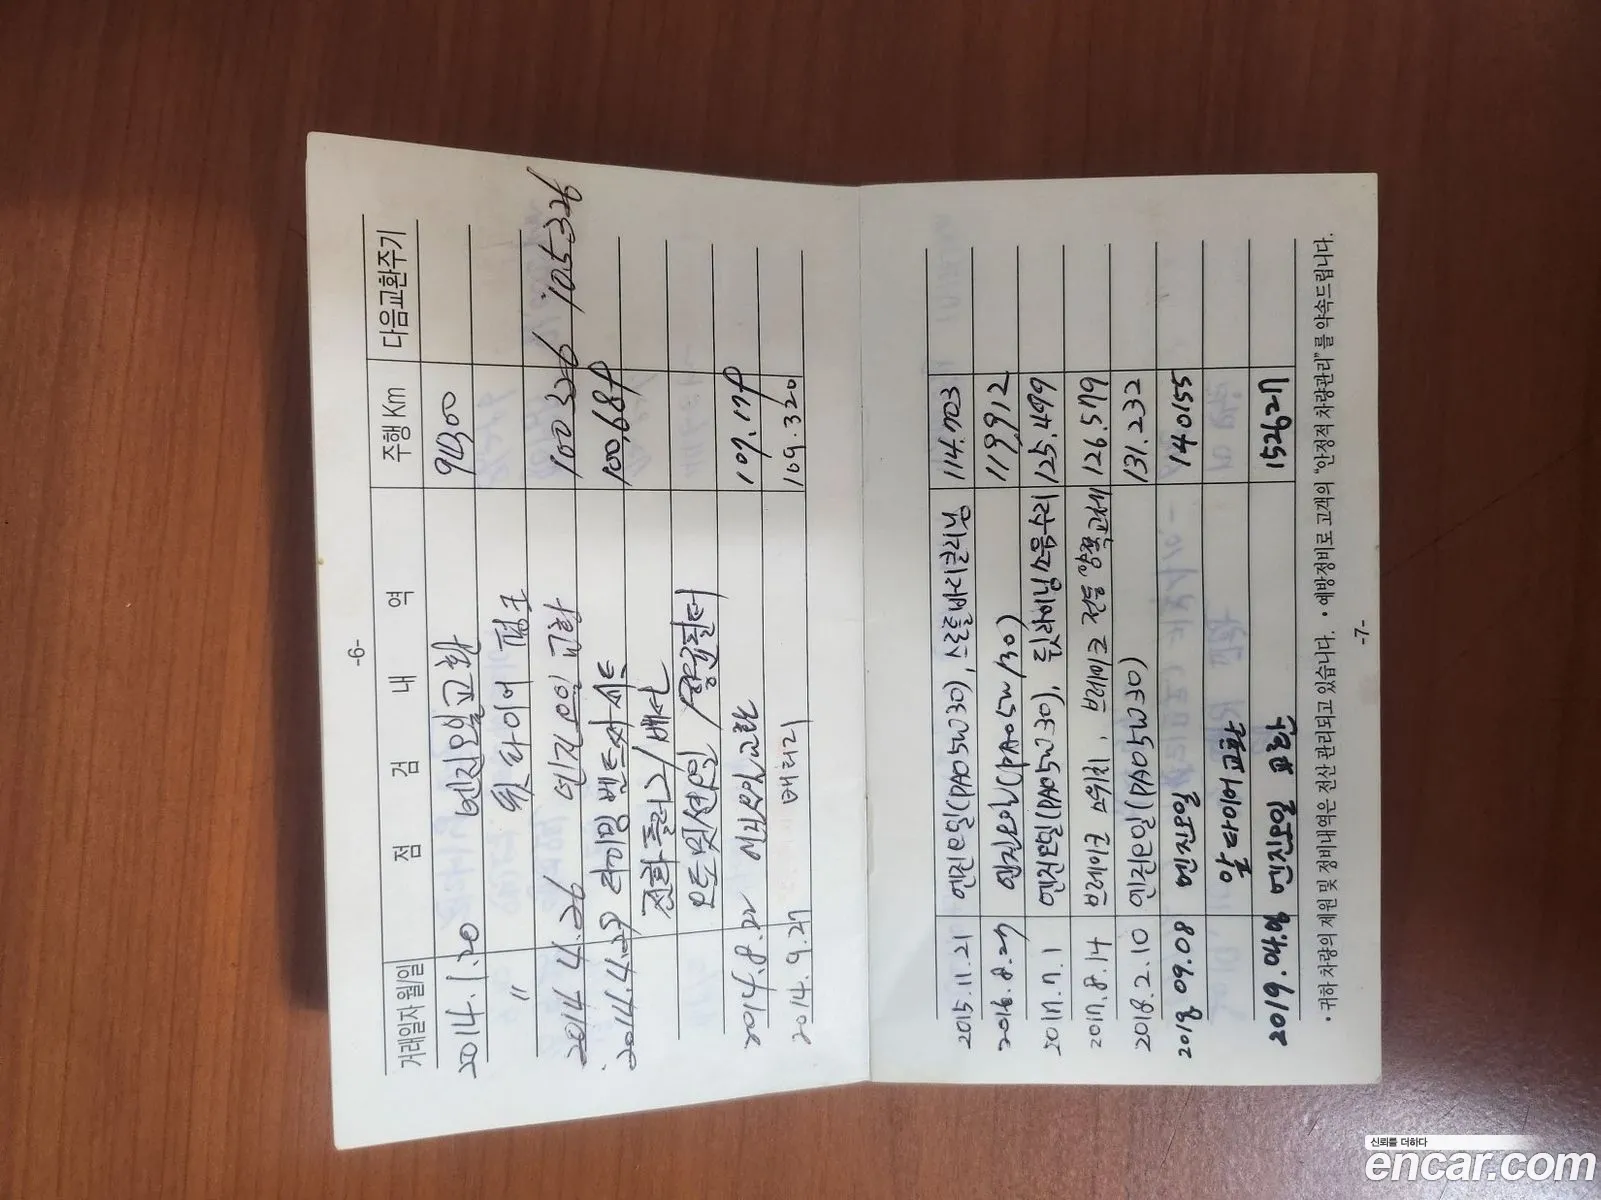 -6-
거래일자 월/일 점 검 내 역 주행 Km 다음교환주기
2014.1.20 엔진오일교환 94300
" 뒷 타이어 펑크
2014 4.26 엔진오일 교환 100326 105326
2014.4.29 타이밍벨트써세트 100,689
점화플러그/배선
2014.8.22 엔진오일교환 109.179
2014.9.27 배터리 109.320
2015.11.21 엔진오일(PAO5W30), 114.003
2016.8.27 엔진오일(PAO5W/30) 119,912
2017.7.1 엔진오일(PAO5W30), 125.499
2017.8.14 브레이크 스위치, 브레이크 전등 양쪽교체 126.579
2018.2.10 엔진오일(PAO5W30) 131.232
2018 09.08 엔진오일 140155
2019.04. 엔진오일 152627
• 귀하 차량의 제원 및 정비내역은 전산 관리되고 있습니다. • 예방정비로 고객의 "안정적 차량관리"를 약속드립니다.
-7-
신뢰를 더하다
encar.com